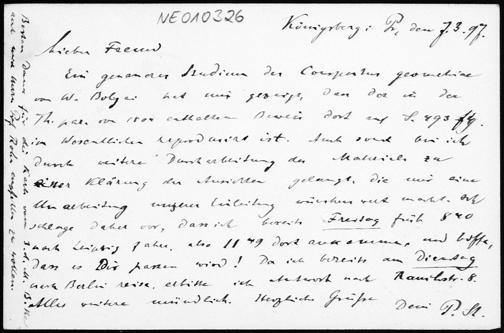 NE010326
Königsberg i. Pr., den 7.3.97.
Lieber Freund
Ein genaues Studium des Conspectus geometriae
von W. Bolyai hat mir gezeigt, dass der in der
Th. par. von 1804 enthaltene Beweis dort auf S. 493 ffg.
im Wesentlichen reproducirt ist. Auch sonst bin ich
durch weitere Durcharbeitung des Materiales zu
einer Klärung der Ansichten gelangt, die mir eine
Umarbeitung unserer Einleitung wünschenswert macht. Ich
schlage daher vor, dass ich bereits Freitag früh 8 40
nach Leipzig fahre, also 11 49 dort ankomme, und hoffe,
dass es Dir passen wird! Da ich bereits am Dienstag
nach Berlin reise, erbitte ich Antwort nach Rauchstr. 8.
Alles weitere mündlich. Herzliche Grüße
Dein P. St.
Besten Dank für die Karte vom 3. d. M. Bitte
auch Herrn Prof.